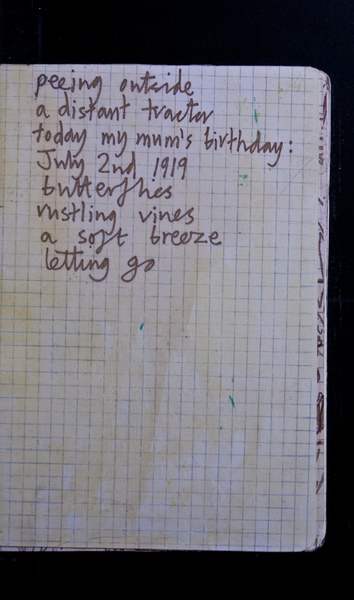 peeing outside
a distant tractor
today my mum's birthday:
July 2nd 1919
butterflies
rustling vines
a soft breeze
letting go